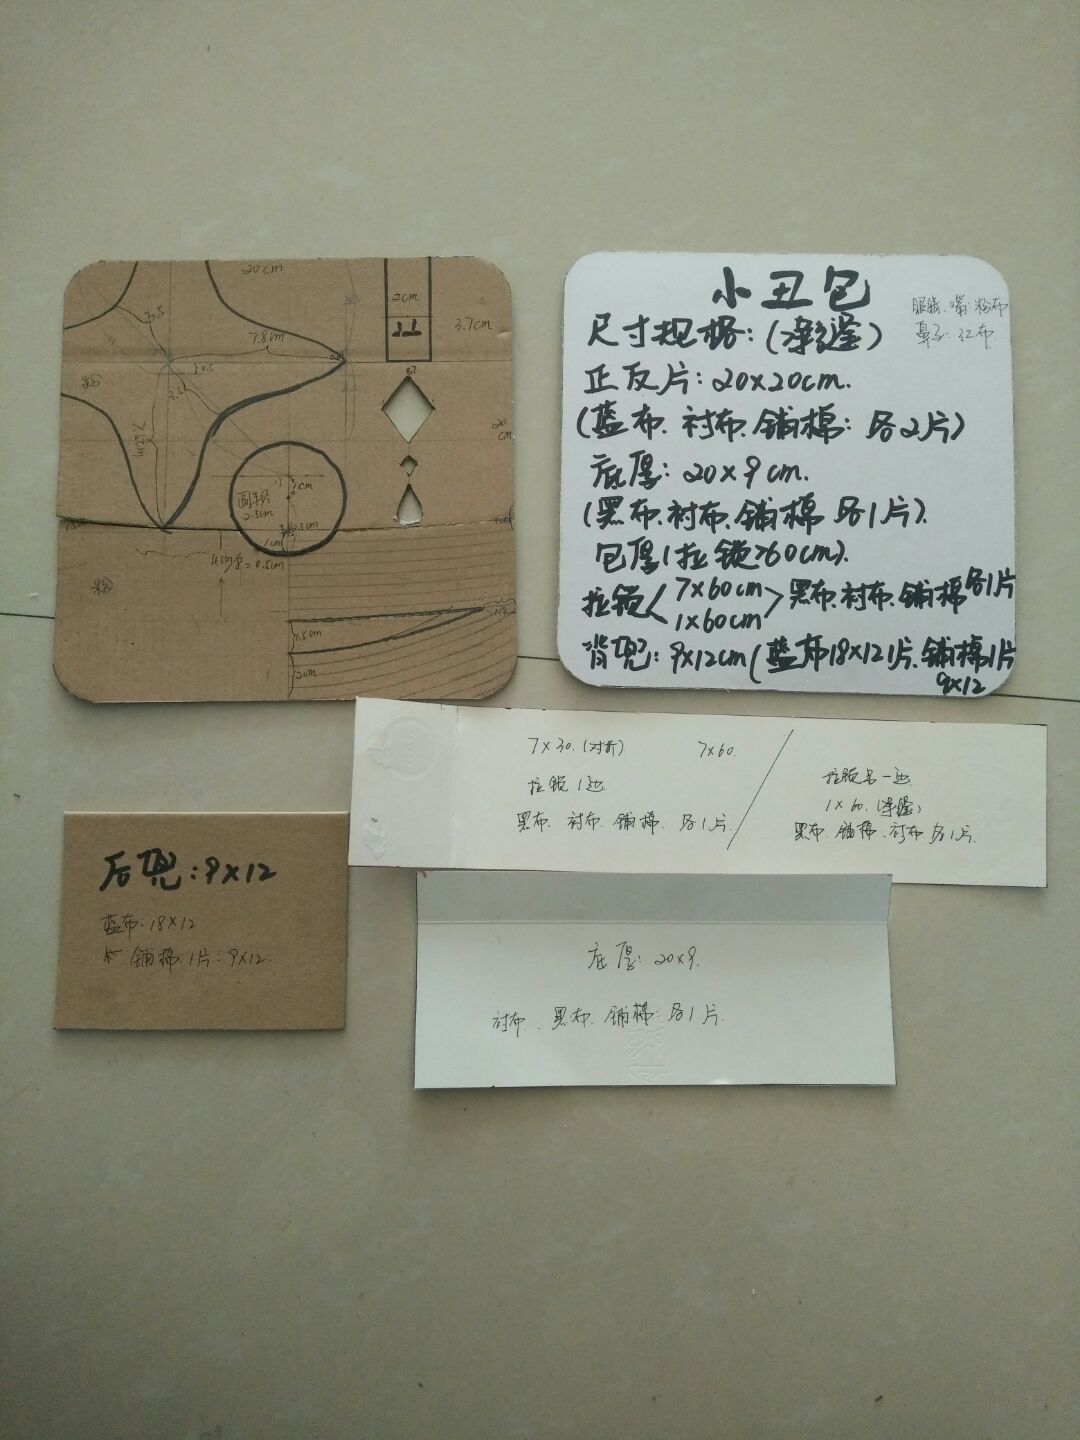 20cm
3.5
7.8cm
2cm
3.7cm
粉
3.5
7cm
20
cm
1cm
圆半径
2.5cm
0.5cm
1cm
=0.5cm
粉
1.5cm
2cm
小丑包
眼睛、嘴:粉布
鼻子:红布
尺寸规格:(净缝)
正反片:20×20cm.
(蓝布、衬布、铺棉:各2片)
底厚:20×9cm.
(黑布、衬布、铺棉各1片).
包厚(拉锁>60cm).
拉锁<7×60cm
1×60cm>黑布、衬布、铺棉各1片
背兜:9×12cm(蓝布18×12 1片、铺棉1片
9×12
7×30.(对折) 7×60.
拉锁1边
黑布、衬布、铺棉、各1片.
拉锁另一边
1×60.(净缝)
黑布、铺棉、衬布、各1片.
后兜:9×12
蓝布:18×12
铺棉:1片:9×12.
底厚:20×9.
衬布、黑布、铺棉:各1片.